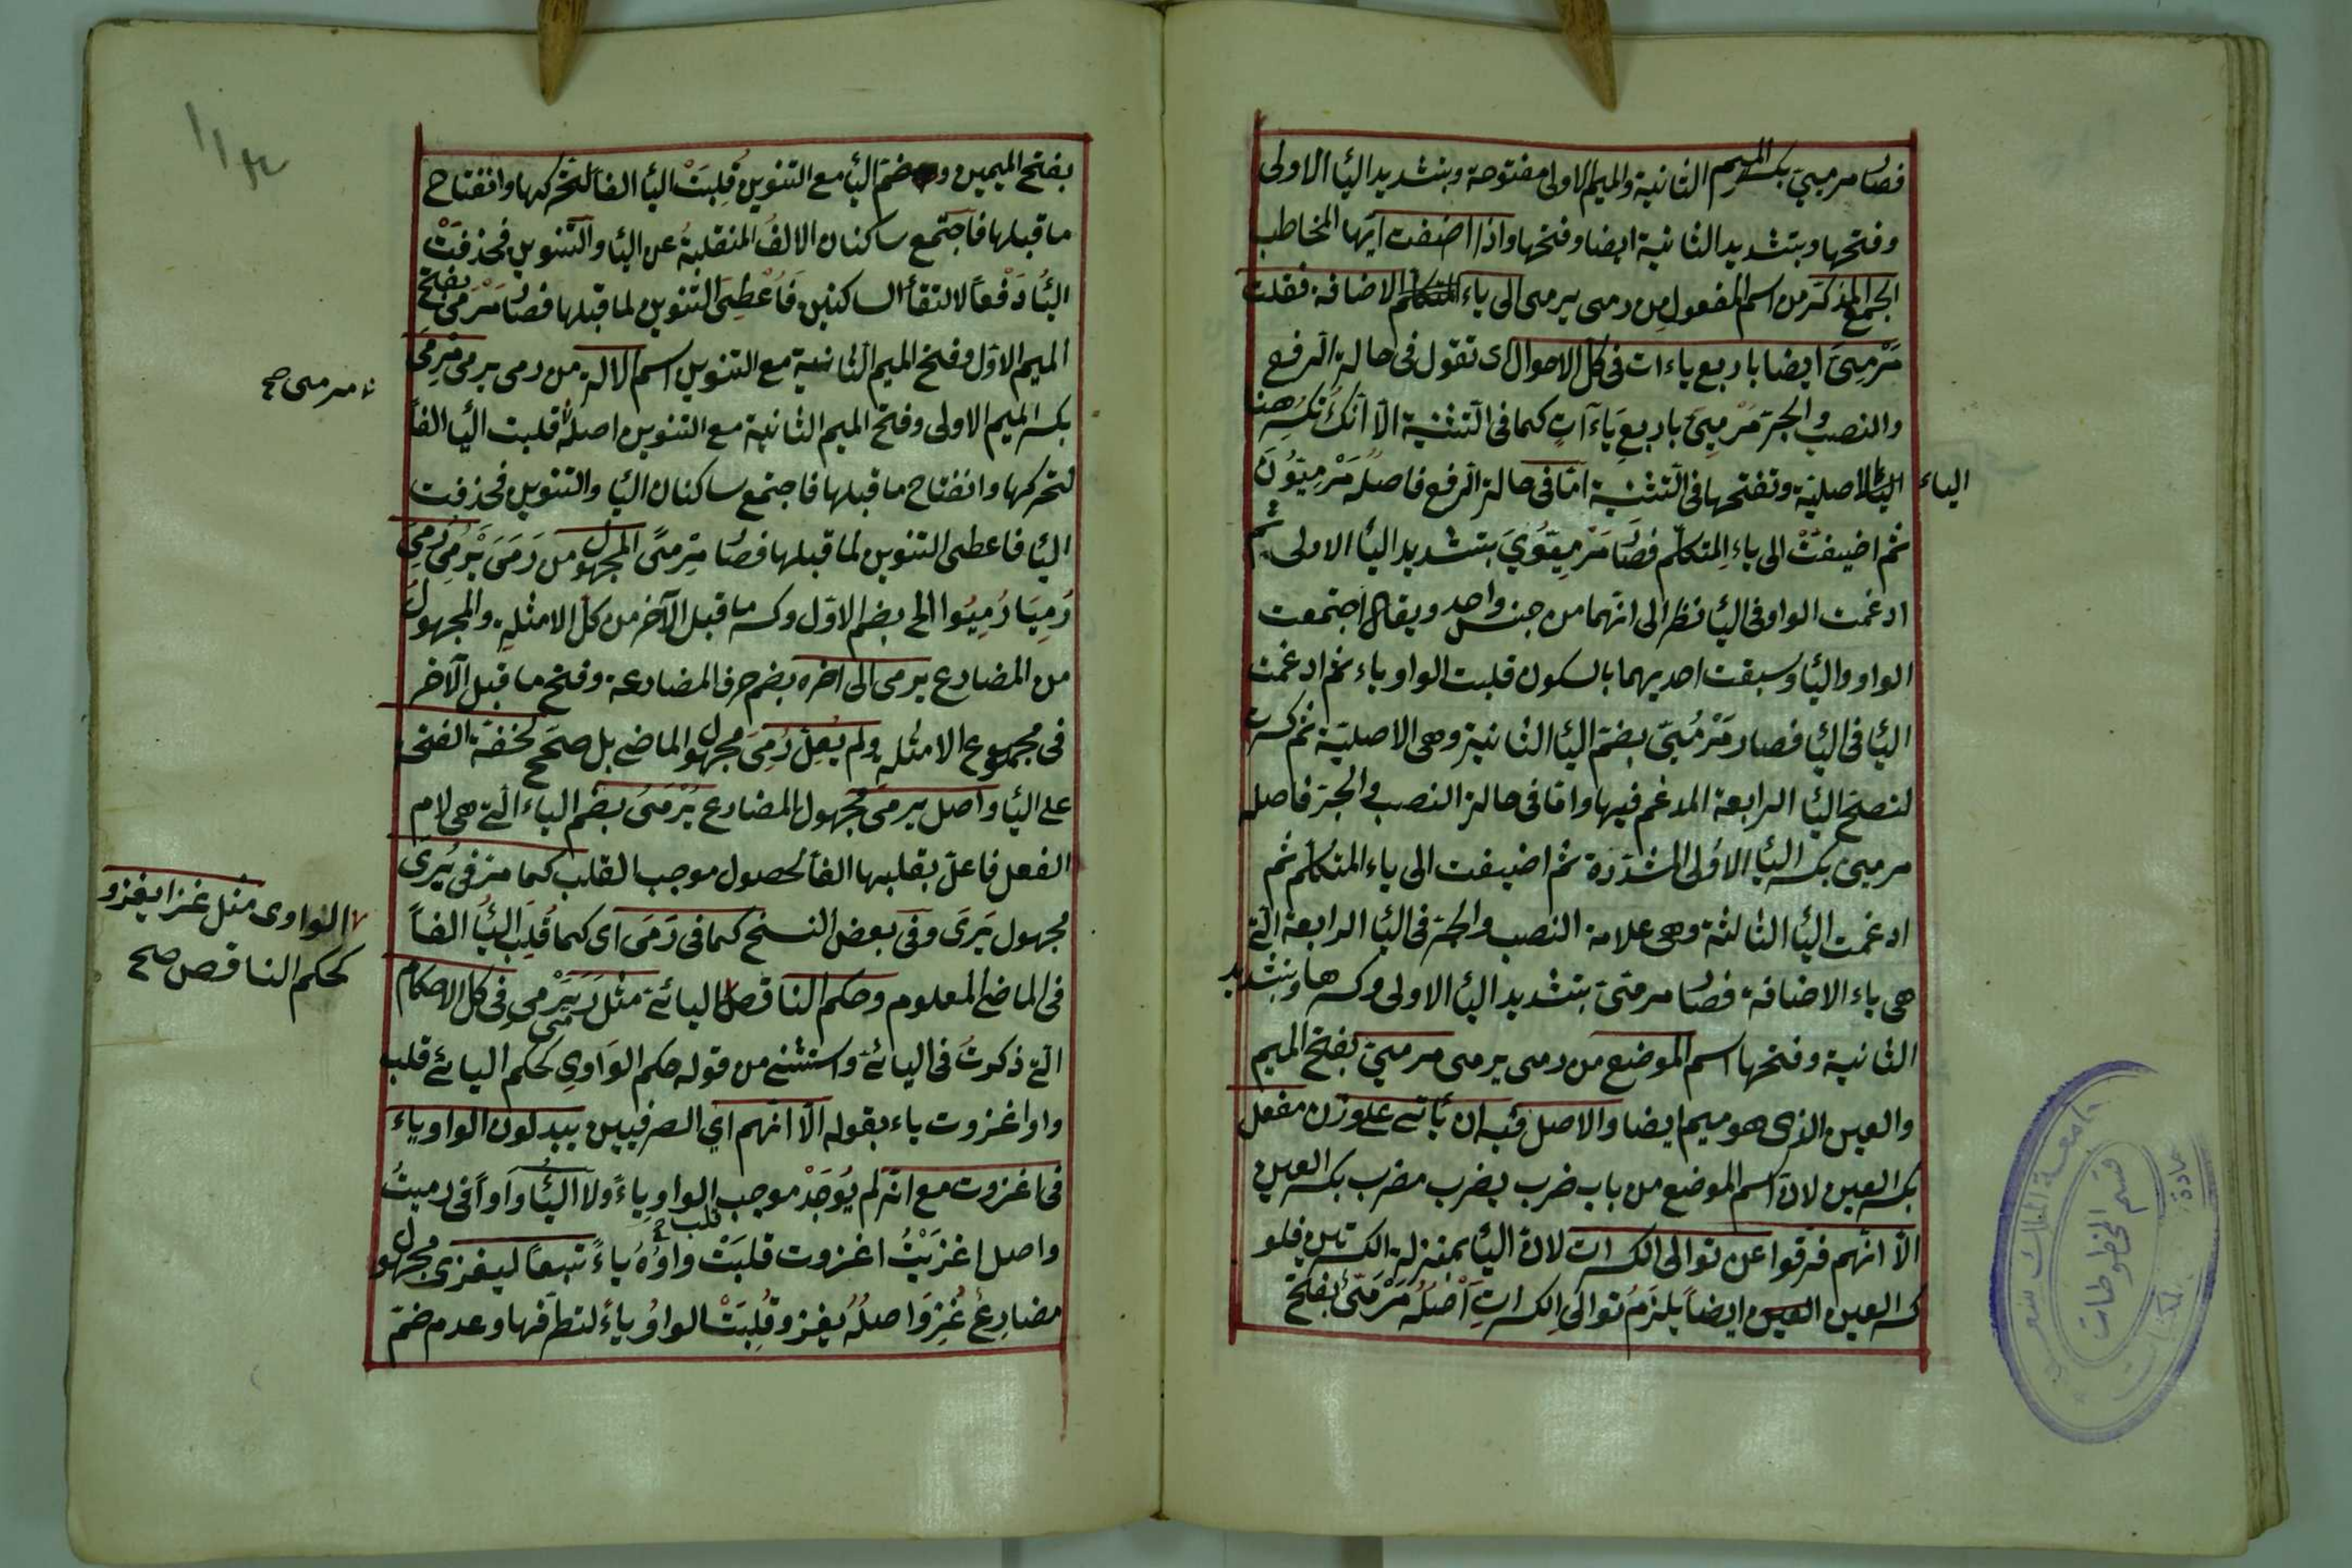 فصار مرميي بكسر الميم الثانية والميم الاولى مفتوحة وبتشديد اليا الاولى
وفتحها وبتشديد الثانية ايضا وفتحها واذا اضفت ايها المخاطب
الجمع المذكر من اسم المفعول من رمى يرمى الى ياء المتكلم الاضافة فقلت
مَرْمِيىَّ ايضا باربع ياءات فى كل الاحوال اى تقول فى حالة الرفع
والنصب والجر مَرْمِيىَّ باربع ياءآتٍ كما فى التثنية الّا انّك تكسر هنا
الياء الاصلية وتفتحها فى التثنية امّا فى حالة الرفع فاصله مَرْمِيّوُنَ
الياء
ثم اضيفتْ الى ياءِ المتكلّم فصار مَرْمِيّوُيَ بتشديد اليا الاولى ثم
ادغمت الواو فى اليا نظرا الى انهما من جنس واحد ويقال اجتمعت
الواو واليا وسبقت احديهما بالسكون قلبت الواو ياء ثم ادغمت
اليا فى اليا فصار مَرْمُيّى بضمّ اليا الثانية وهى الاصليّة ثم كسرت
لتصحّ اليا الرابعة المدغم فيها وامّا فى حالة النصب والجر فاصله
مرميين بكسر اليا الاولى المشدّدة ثم اضيفت الى ياء المتكلّم ثم
ادغمت اليا الثالثة وهى علامة النصب والجر فى اليا الرابعة التى
هى ياء الاضافة فصار مرميّىّ بتشديد اليا الاولى وكسرها وبتشديد
الثانية وفتحها اسم الموضع من رمى يرمى مرمىً بفتح الميم
والعين الذى هو ميم ايضا والاصل فيه ان يأتى على وزن مفعل
بكسر العين لانّ اسم الموضع من باب ضرب يضرب مضرب بكسر العين
الّا انّهم فرقوا عن توالى الكسرات لانّ اليا بمنزلة الكسرتين فلو
كسر العين العين ايضاً يلزَمُ توالى الكسراتِ اَصْلُه مَرْمَىٌ بفتح
بفتح الميمين وضمّ اليا مع التنوين قُلِبَتْ اليا الفاً لتحركها وانفتاح
ما قبلها فاجتمع ساكنان الالفُ المنقلبةُ عن اليا والتنوين فحذفتْ
اليا دَفْعاً لالتقأ الساكنين فَاُعْطِىَ التنوين لما قبلها فصار مَرْمىً بفتح
الميم الاوّل وفتح الميم الثانية مع التنوين اسم الالة من رمى يرمى مِرمىً
مرمى صح
بكسر الميم الاولى وفتح الميم الثانية مع التنوين اصله قلبت اليا الفاً
لتحركها وانفتاح ما قبلها فاجتمع ساكنان اليا والتنوين فحذفت
اليا فاعطى التنوين لما قبلها فصار مِرمىً المجهول من رَمَى يَرْمِى رُمِىَ
رُمِيَا رُمِيُوا الخ بضم الاوّل وكسر ما قبل الآخر من كلّ الامثلةِ والمجهول
من المضارع يرمى الى اخره بضم حرف المضارعة وفتح ما قبل الآخر
فى مجموع الامثلةِ ولم يُعلّ رُمِىَ مجهول الماضى بل صحّح لخفّة الفتحة
على اليا واصل يرمى مجهول المضارع يُرْمَىُ بضمّ الياء التى هى لام
الفعل فاعلّ بقلبها الفاً لحصول موجب القلب كما مرّ فى يُرى
مجهول يَرَى وفى بعض النسخ كما فى رَمَى اى كما قُلِبَ اليا الفاً
فى الماضى المعلوم وحكم الناقص اليائى مثل رمى يَرْمى فى كل الاحكام
الواوى مثل غزا يغزو
كحكم الناقص صح
التى ذكرتُ فى اليائى واستثنى من قوله حكم الواوىِ كحكم اليائى قلب
واو اغزوت ياء بقوله الّا انّهم اى الصرفيين يبدلون الواو ياء
فى اغزوت مع انّه لم يُوجَدْ موجب الواو ياءً ولا اليا واواً فى رميتُ
قلب صح
واصل اغزَيْتُ اغزوت قلبَتْ واوُهُ ياءً تبعاً ليغزى مجهول
مضارع غُزِوَ اصلُهُ يغزو قُلِبَتْ الواوُ ياءً لتطرّفها وعدم ضمّ
جامعة الملك سعود
قسم المخطوطات
عمادة